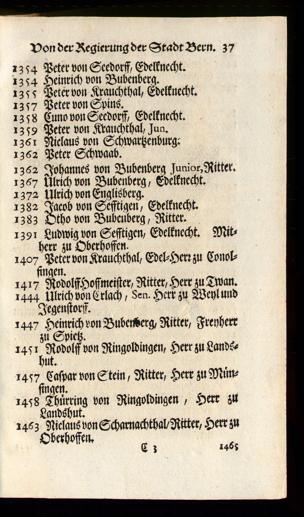 Von der Regierung der Stadt Bern. 37
1354 Peter von Seedorff, Edelknecht.
1354 Heinrich von Bubenberg.
1355 Peter von Krauchthal, Edelknecht.
1357 Peter von Spins.
1358 Cuno von Seedorff, Edelknecht.
1359 Peter von Krauchthal, Jun.
1361 Niclaus von Schwartzenburg.
1362 Peter Schwaab.
1362 Johannes von Bubenberg Junior, Ritter.
1367 Ulrich von Bubenberg, Edelknecht.
1372 Ulrich von Englisberg.
1382 Jacob von Sefftigen, Edelknecht.
1383 Otho von Bubenberg, Ritter.
1391 Ludwig von Sefftigen, Edelknecht. Mit-
herr zu Oberhoffen.
1407 Peter von Krauchthal, Edel-Herr zu Conol-
fingen.
1417 Rodolff Hoffmeister, Ritter, Herr zu Twan.
1444 Ulrich von Erlach, Sen. Herr zu Weyl und
Jegenstorff.
1447 Heinrich von Bubenberg, Ritter, Freyherr
zu Spietz.
1451 Rodolff von Ringoldingen, Herr zu Lands-
hut.
1457 Caspar von Stein, Ritter, Herr zu Mün-
singen.
1458 Thürring von Ringoldingen, Herr zu
Landshut.
1463 Niclaus von Scharnachthal, Ritter, Herr zu
Oberhoffen.
C 3 1465